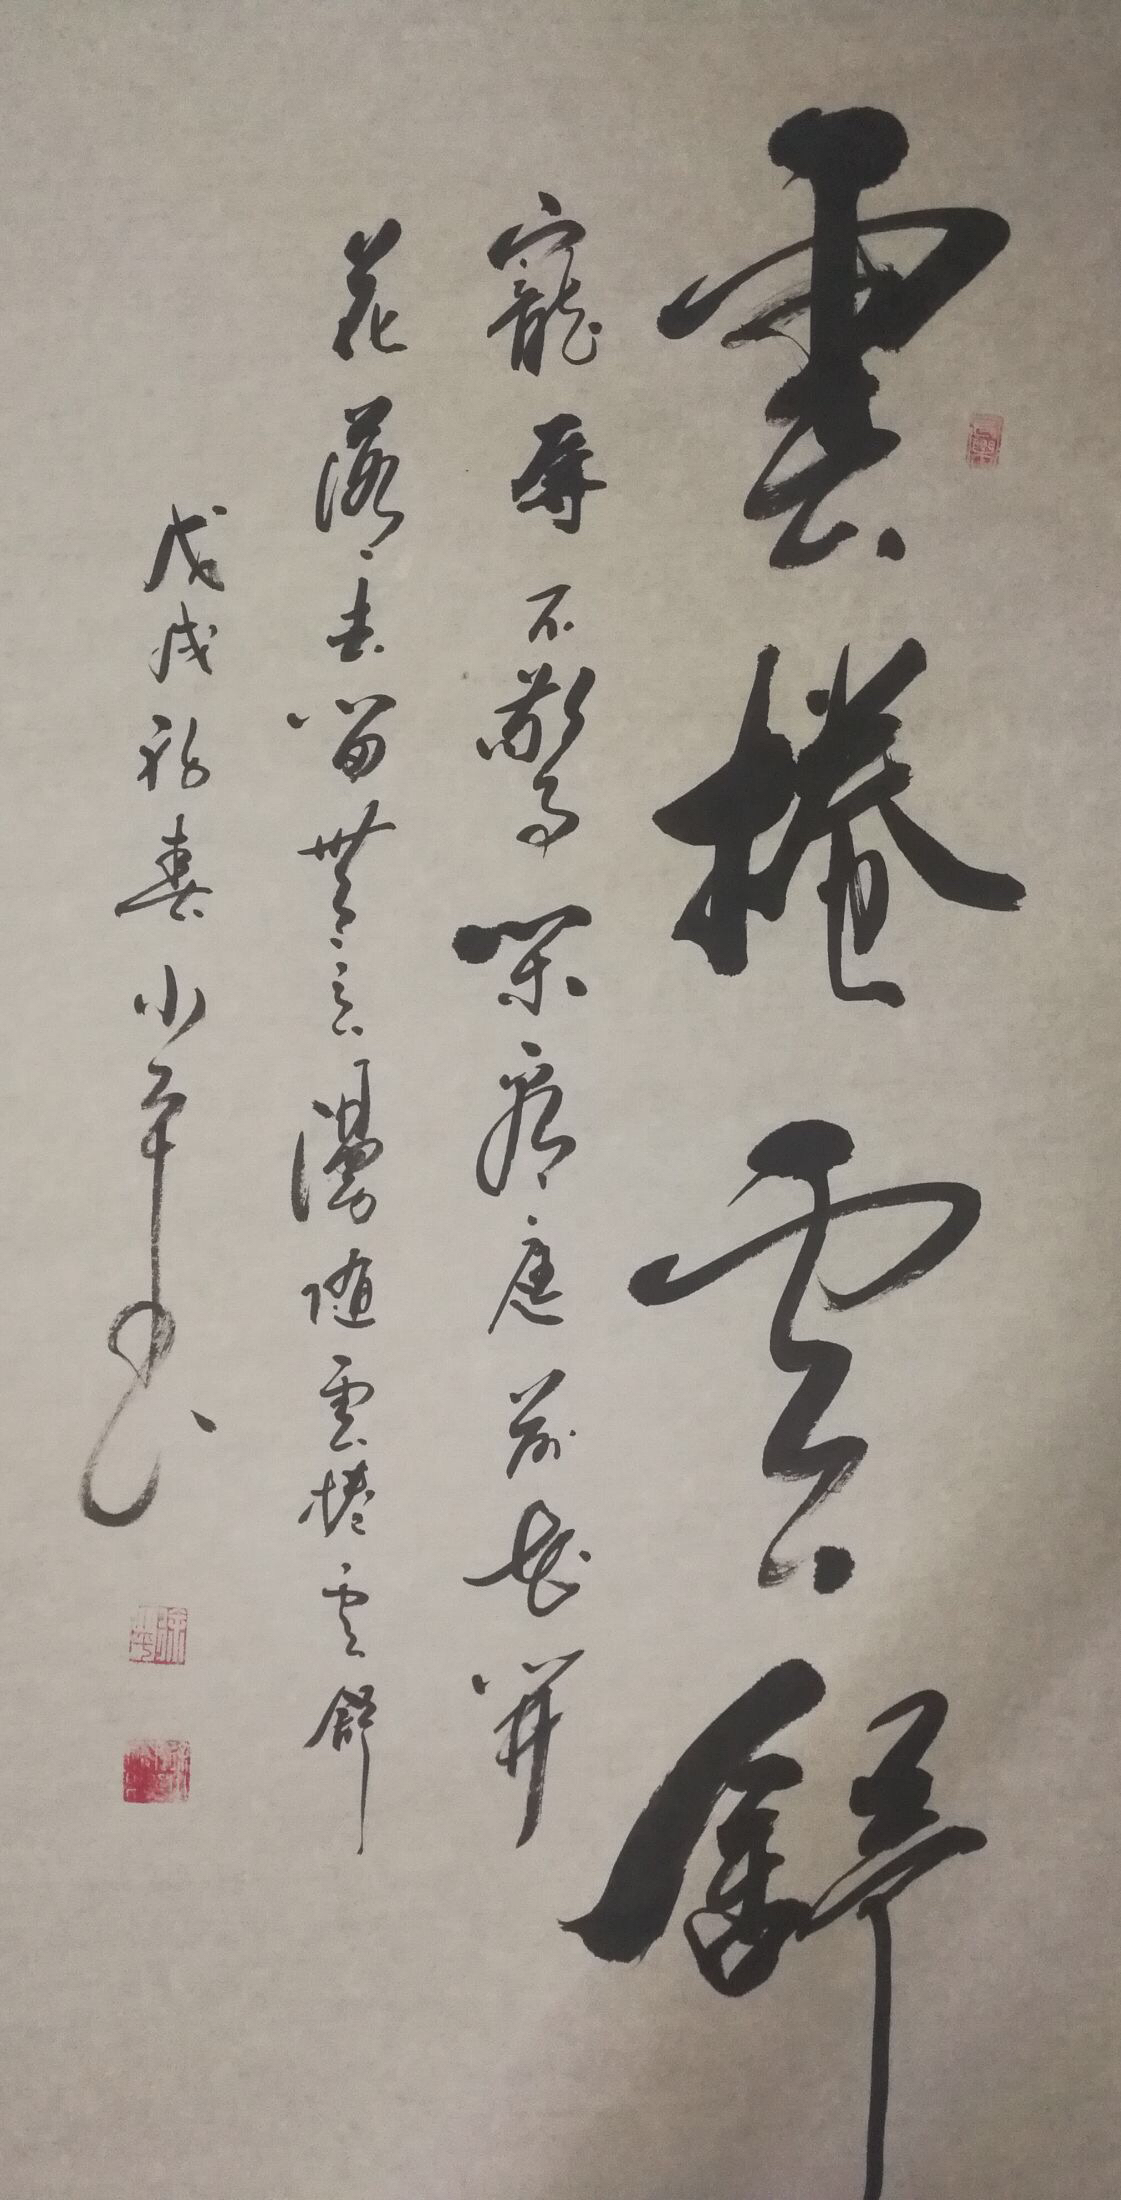 雲捲雲舒
寵辱不驚閑看庭前花開
花落去留無意漫隨雲捲雲舒
戊戌初春小平